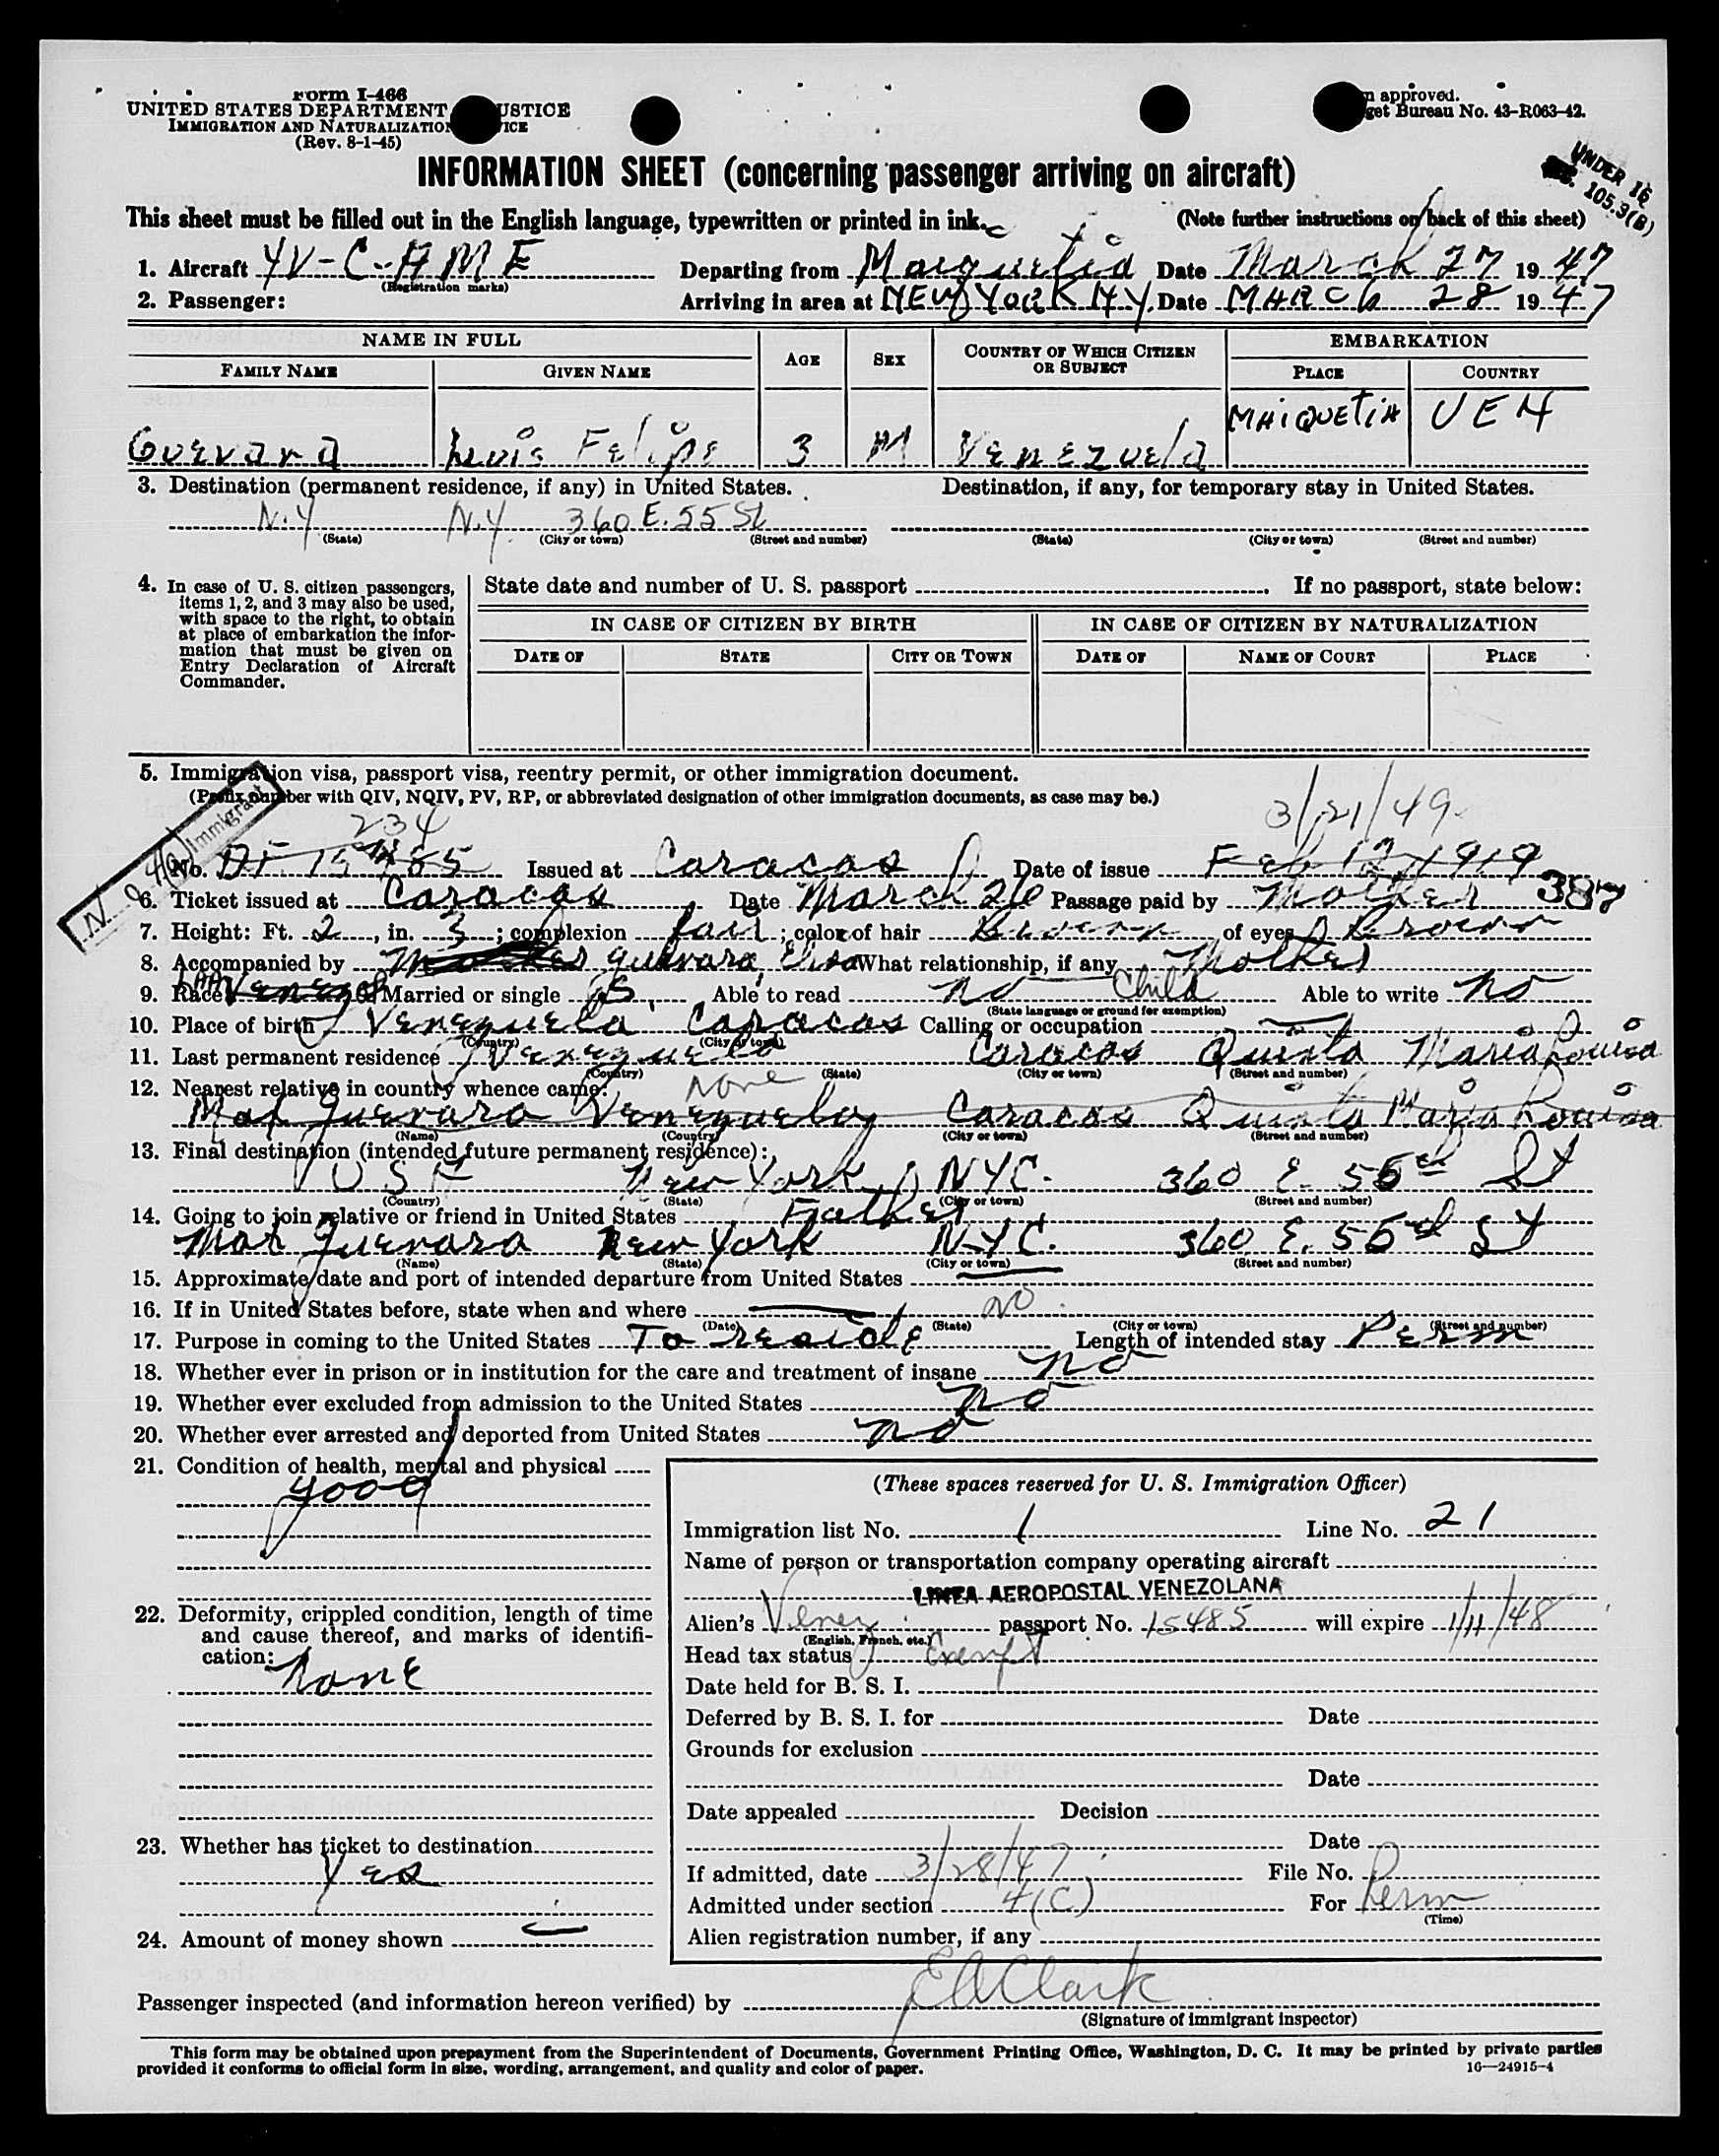 Form I-466
UNITED STATES DEPARTMENT USTICE
IMMIGRATION AND NATURALIZATION ICE
(Rev. 8-1-45)
approved.
get Bureau No. 43-R063-42.
UNDER 16
105.3(B)
INFORMATION SHEET (concerning passenger arriving on aircraft)
This sheet must be filled out in the English language, typewritten or printed in ink. (Note further instructions on back of this sheet)
1. Aircraft YV-C-AME Departing from Maiquetia Date March 27 1947
(Registration marks)
2. Passenger: Arriving in area at NEW YORK N.Y. Date MARCH 28 1947
NAME IN FULL AGE SEX COUNTRY OF WHICH CITIZEN OR SUBJECT EMBARKATION
FAMILY NAME GIVEN NAME PLACE COUNTRY
Guevara Luis Felipe 3 M Venezuela MAIQUETIA VEN
3. Destination (permanent residence, if any) in United States. Destination, if any, for temporary stay in United States.
N.Y N.Y. 360 E. 55 St
(State) (City or town) (Street and number) (State) (City or town) (Street and number)
4. In case of U. S. citizen passengers, items 1, 2, and 3 may also be used, with space to the right, to obtain at place of embarkation the information that must be given on Entry Declaration of Aircraft Commander.
State date and number of U. S. passport If no passport, state below:
IN CASE OF CITIZEN BY BIRTH IN CASE OF CITIZEN BY NATURALIZATION
DATE OF STATE CITY OR TOWN DATE OF NAME OF COURT PLACE
5. Immigration visa, passport visa, reentry permit, or other immigration document.
(Prefix number with QIV, NQIV, PV, RP, or abbreviated designation of other immigration documents, as case may be.)
Immigrant
234 3/21/49
No. Issued at Caracas Date of issue Feb 12, 1949
6. Ticket issued at Caracas Date March 26 Passage paid by Mother 387
7. Height: Ft. 2, in. 3; complexion fair; color of hair Brown of eyes Brown
8. Accompanied by Guevara, Elisa What relationship, if any Mother
9. Race Married or single S Able to read no Child Able to write no
(State language or ground for exemption)
10. Place of birth Venezuela Caracas Calling or occupation
(Country) (City or town)
11. Last permanent residence Venezuela Caracas Quinta Maria Louisa
(Country) (State) (City or town) (Street and number)
12. Nearest relative in country whence came: none
Guevara Venezuela Caracas Quinta Maria Louisa
(Name) (Country) (City or town) (Street and number)
13. Final destination (intended future permanent residence):
USA New York NYC. 360 E. 55th St
(Country) (State) (City or town) (Street and number)
14. Going to join relative or friend in United States Father
Guevara New York NYC. 360 E. 55th St
(Name) (State) (City or town) (Street and number)
15. Approximate date and port of intended departure from United States
16. If in United States before, state when and where no
(Date) (State) (City or town) (Street and number)
17. Purpose in coming to the United States To reside Length of intended stay Perm
18. Whether ever in prison or in institution for the care and treatment of insane no
19. Whether ever excluded from admission to the United States no
20. Whether ever arrested and deported from United States no
21. Condition of health, mental and physical
good
22. Deformity, crippled condition, length of time and cause thereof, and marks of identification:
None
23. Whether has ticket to destination
Yes
24. Amount of money shown
(These spaces reserved for U. S. Immigration Officer)
Immigration list No. 1 Line No. 21
Name of person or transportation company operating aircraft
LINEA AEROPOSTAL VENEZOLANA
Alien's Venez. passport No. 15485 will expire 1/11/48
(English, French, etc.)
Head tax status Exempt
Date held for B. S. I.
Deferred by B. S. I. for Date
Grounds for exclusion
Date
Date appealed Decision
Date
If admitted, date 3/28/47 File No.
Admitted under section 4(C) For Perm
(Time)
Alien registration number, if any
Passenger inspected (and information hereon verified) by EAClark
(Signature of immigrant inspector)
This form may be obtained upon prepayment from the Superintendent of Documents, Government Printing Office, Washington, D. C. It may be printed by private parties
provided it conforms to official form in size, wording, arrangement, and quality and color of paper. 16—24915-4